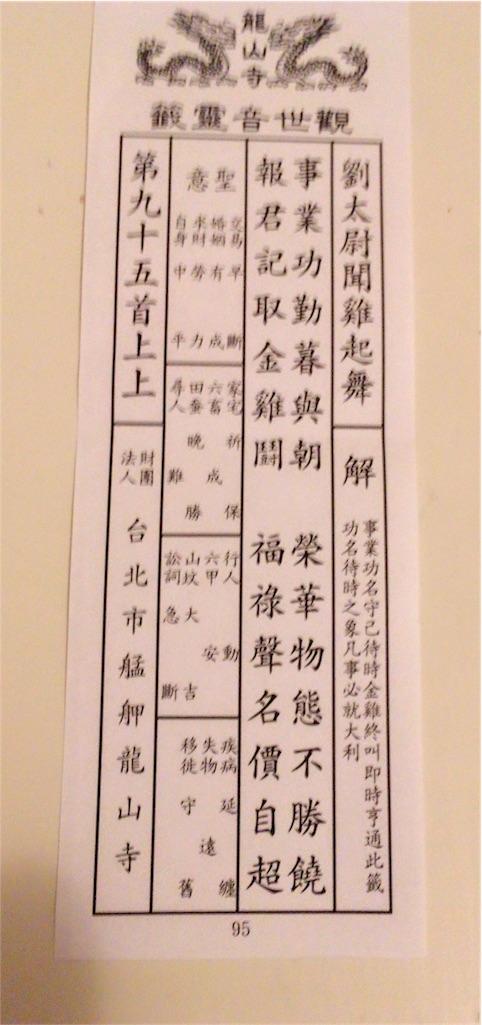 龍山寺
觀世音靈籤
劉太尉聞雞起舞
解
事業功名守己待時金雞終叫即時亨通此籤
功名待時之象凡事必就大利
事業功勤暮與朝 榮華物態不勝饒
報君記取金雞鬪 福祿聲名價自超
聖意
交易 早斷
婚姻 有成
求財 勞力
自身 中平
家宅 祈保
六畜 成
田蚕 晚勝
尋人 難
行人 動
六甲 安
山坟 大吉
訟詞 急斷
疾病 延纏
失物 遠
移徙 守舊
第九十五首上上
財團
法人
台北市艋舺龍山寺
95